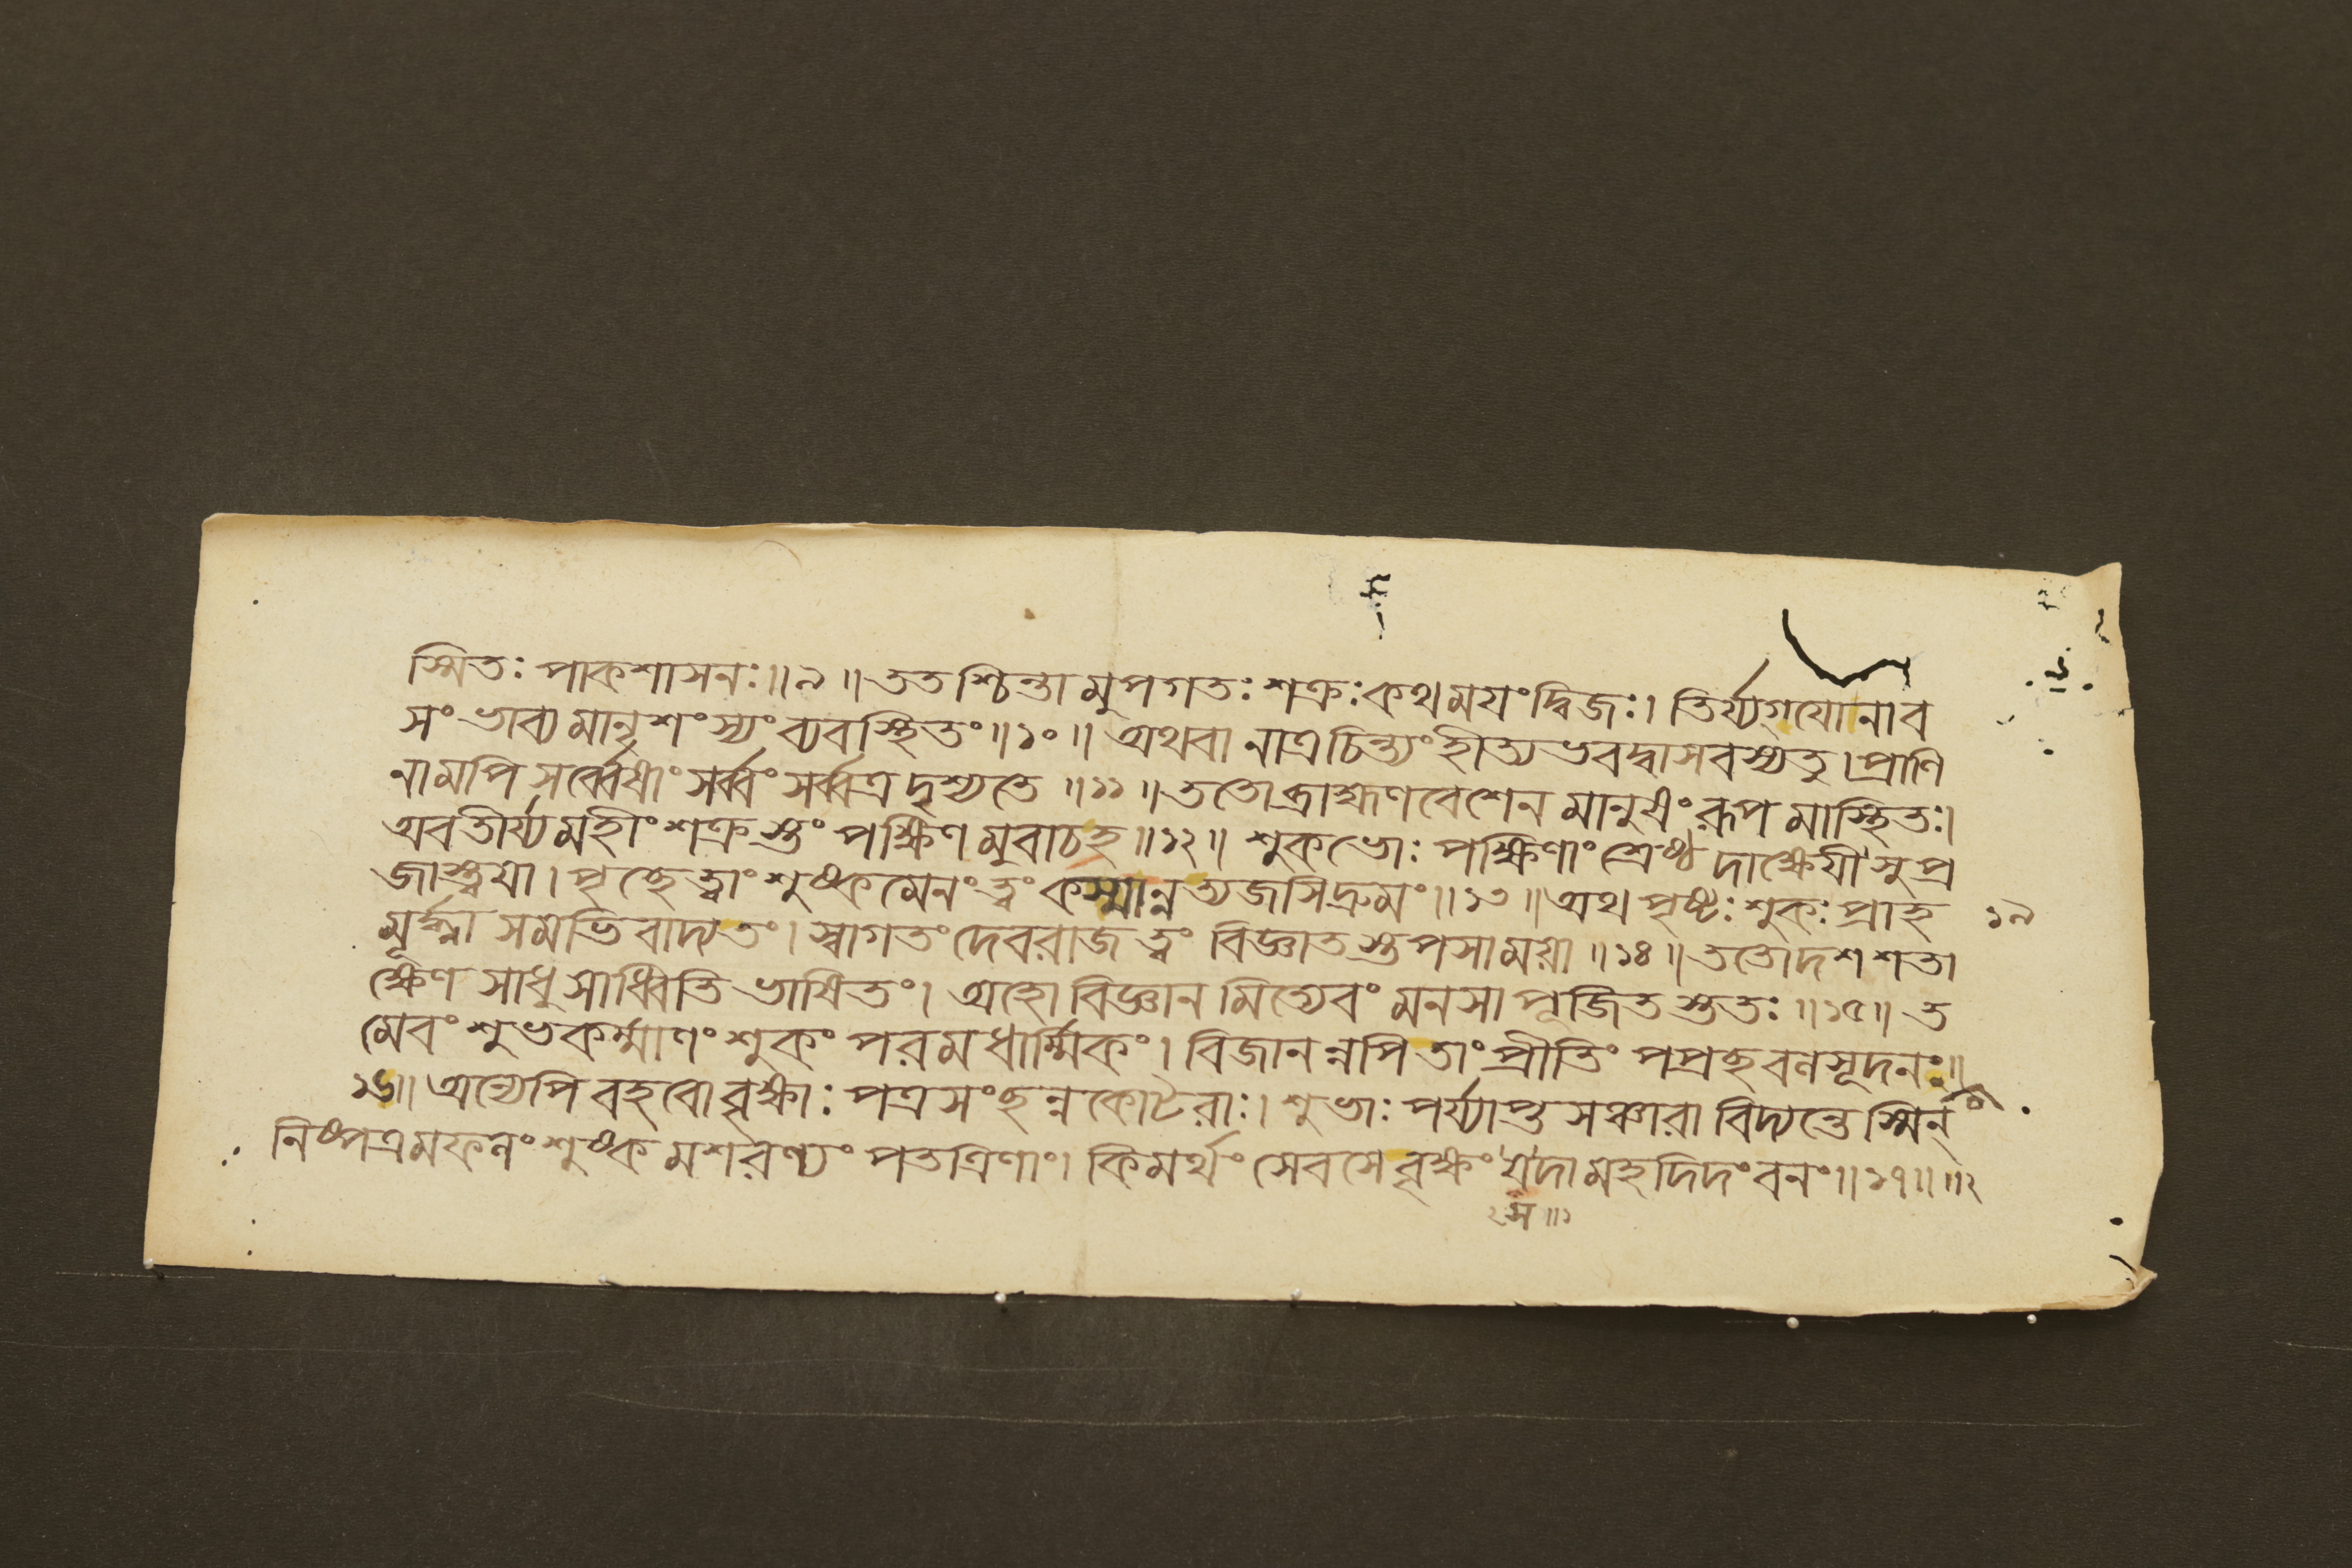 স্মিতঃ পাকশাসনঃ॥৯॥ততশ্চিন্তামুপগতঃ শক্রঃকথময়ংদ্বিজঃ। তির্য্যগ্‌যোনাব
সংভাব্যমানৃশংস্যং ব্যবস্থিতং॥১০॥ অথবা নাত্রচিন্ত্যংহীত্যভবদ্বাসবস্যতু।প্রাণি
নামপি সর্ব্বেষাংসর্ব্বংসর্ব্বত্রদৃশ্যতে॥১১॥ততোব্রাহ্মণবেশেন মানুষংরূপমাস্থিতঃ।
অবতীর্য্যমহীংশক্রস্তং পক্ষিণমুবাচহ॥১২॥ শুকভোঃ পক্ষিণাংশ্রেষ্ঠদাক্ষেয়ীসুপ্র
জাস্ত্বয়া।পৃচ্ছেত্বাং শুষ্কমেনংত্বং কস্মান্নত্যজসিদ্রুমং॥১৩॥অথপৃষ্টঃশুকঃপ্রাহ ১৯
মূর্দ্ধ্না সমভিবাদ্যতং।স্বাগতংদেবরাজত্বং বিজ্ঞাতস্তপসাময়া॥১৪॥ততোদশশতা
ক্ষেণ সাধুসাধ্বিতিভাষিতং। অহোবিজ্ঞানমিত্যেবং মনসাপূজিতস্ততঃ॥১৫॥ ত
মেবং শুভকর্ম্মাণংশুকং পরমধার্ম্মিকং।বিজানন্নপিতাংপ্রীতিং পপ্রচ্ছবলসূদনঃ॥
১৬॥অন্যেপিবহবোবৃক্ষাঃপত্রসংছন্নকোটরাঃ। শুভাঃপর্য্যাপ্তসঞ্চারাবিদ্যন্তেস্মিন্
নিষ্পত্রমফলংশুষ্কমশরণ্যংপতত্রিণাং। কিমর্থংসেবসেবৃক্ষংযদামহদিদংবনং॥১৭॥ ॥২
স॥১